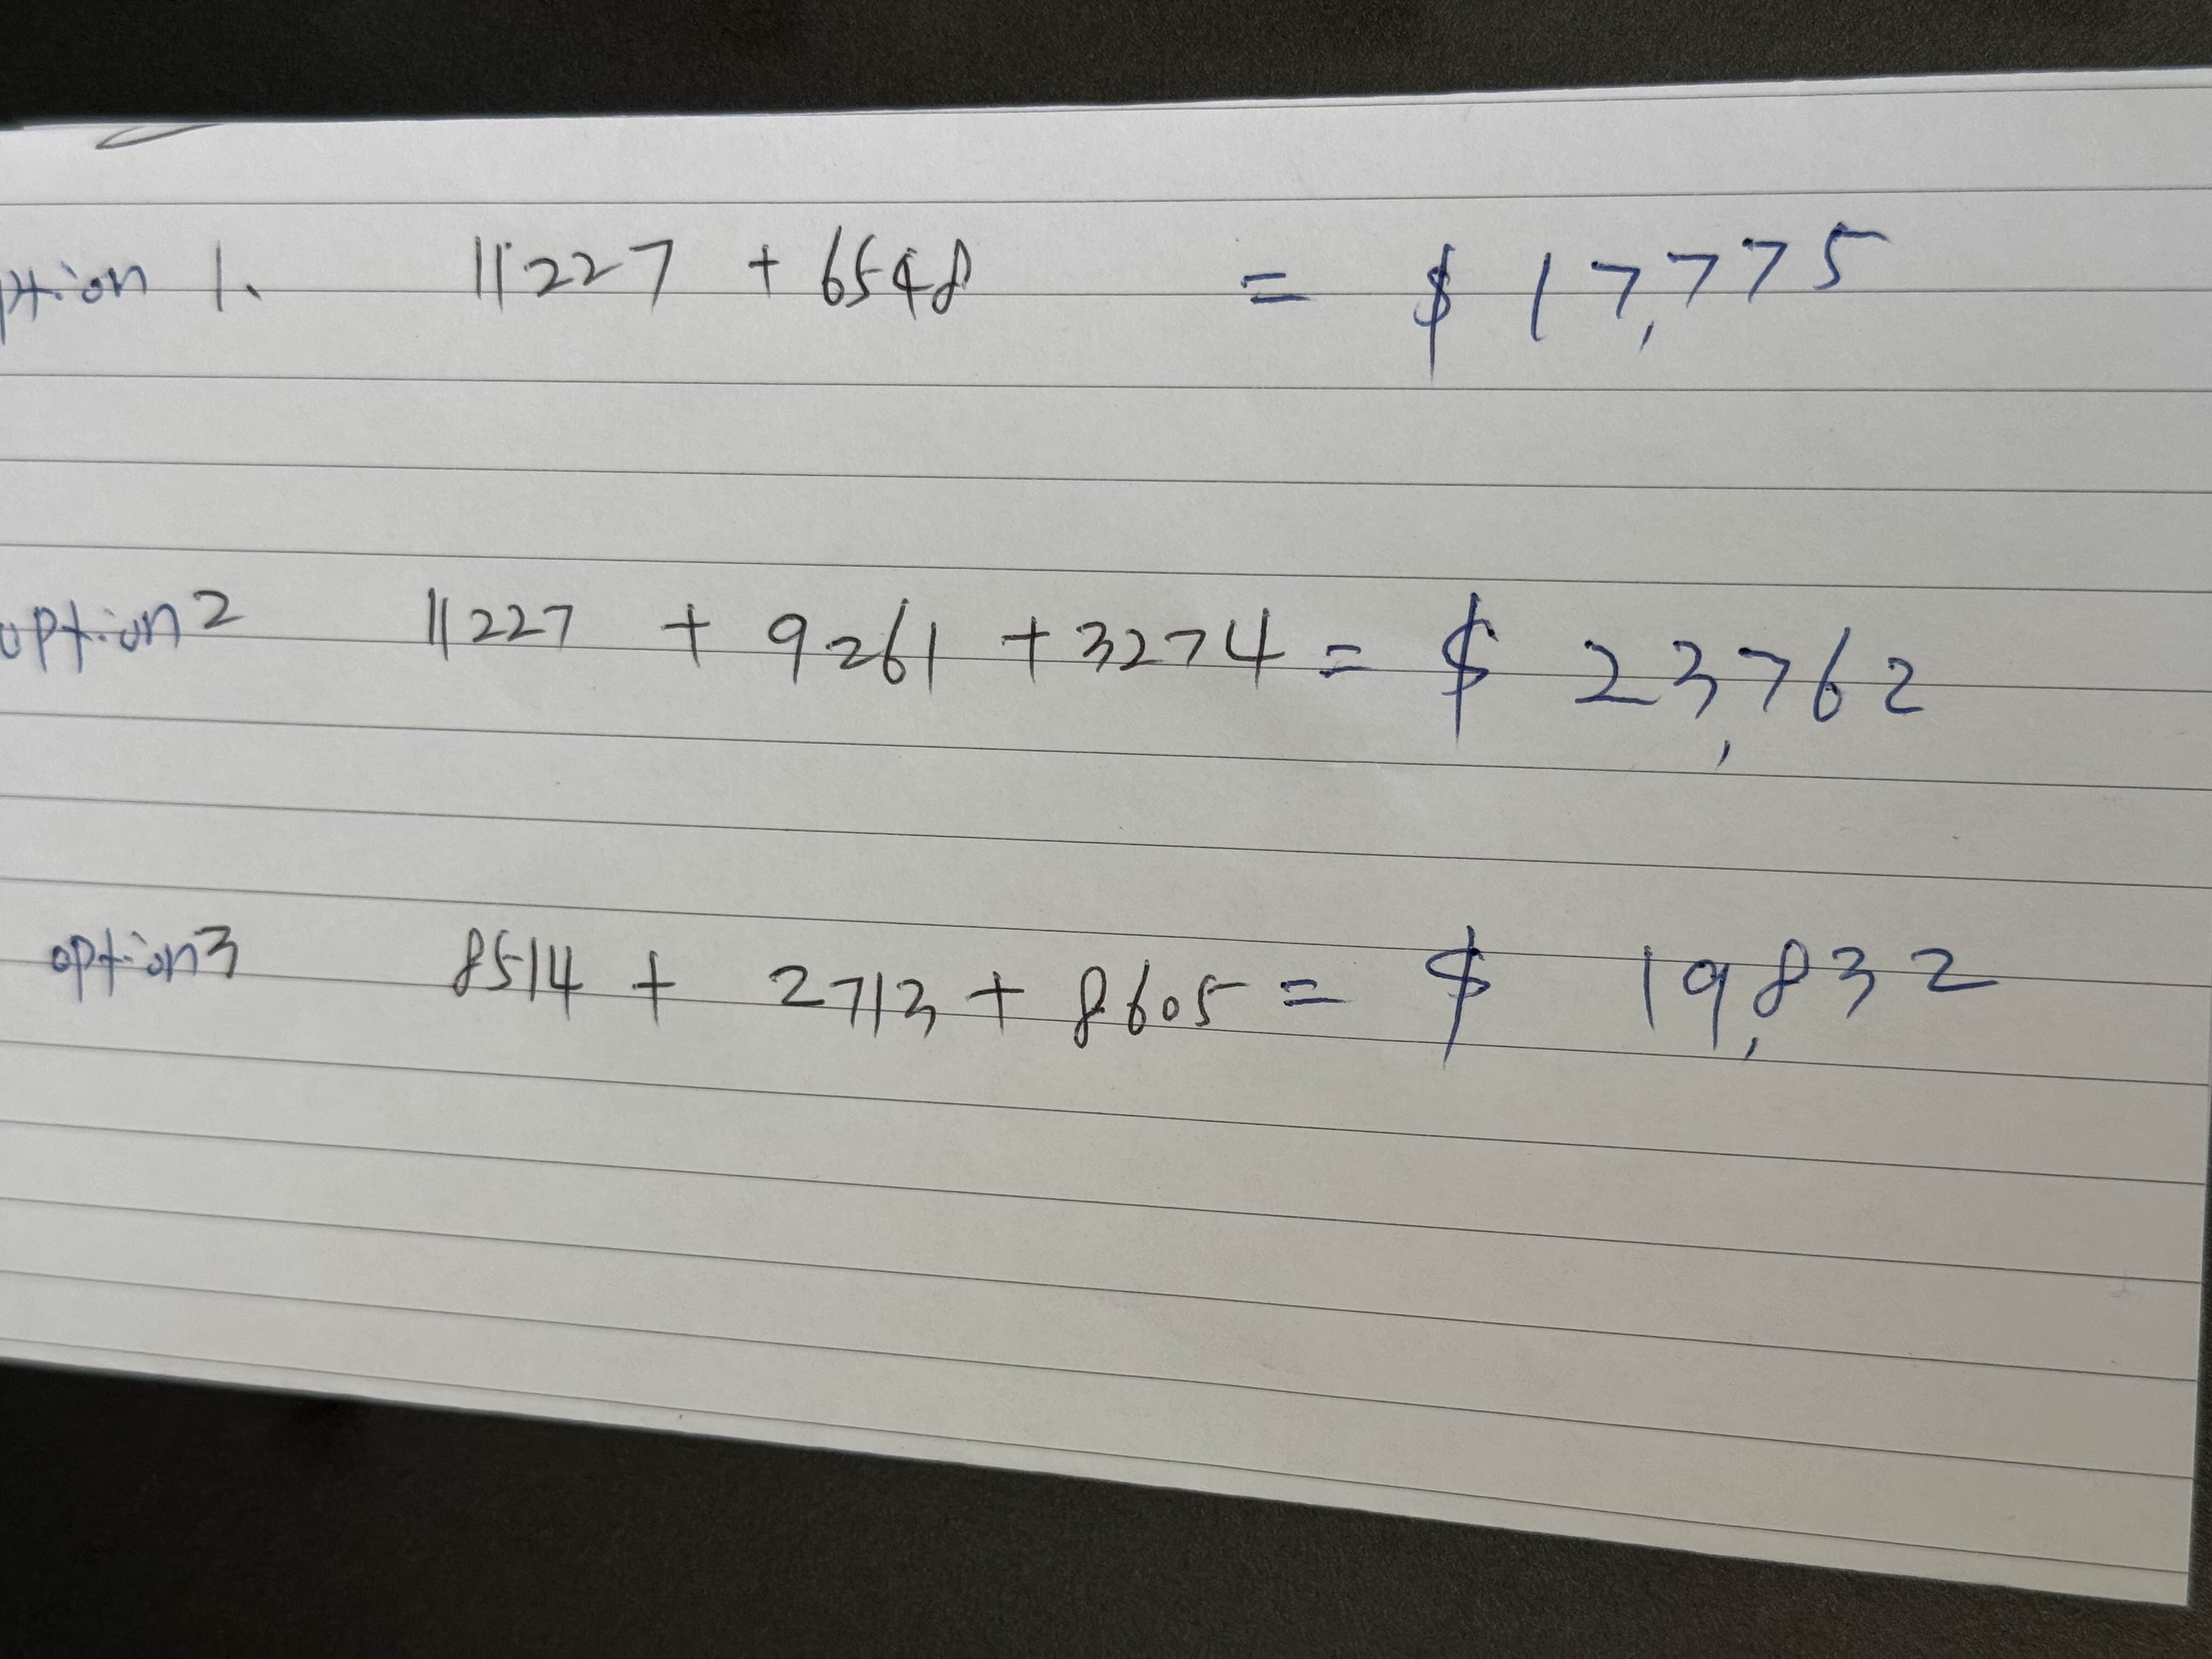 ption 1. 11227 + 6548 = $ 17,775
option 2 11227 + 9261 + 3274 = $ 23,762
option 3 8514 + 2713 + 8605 = $ 19,832